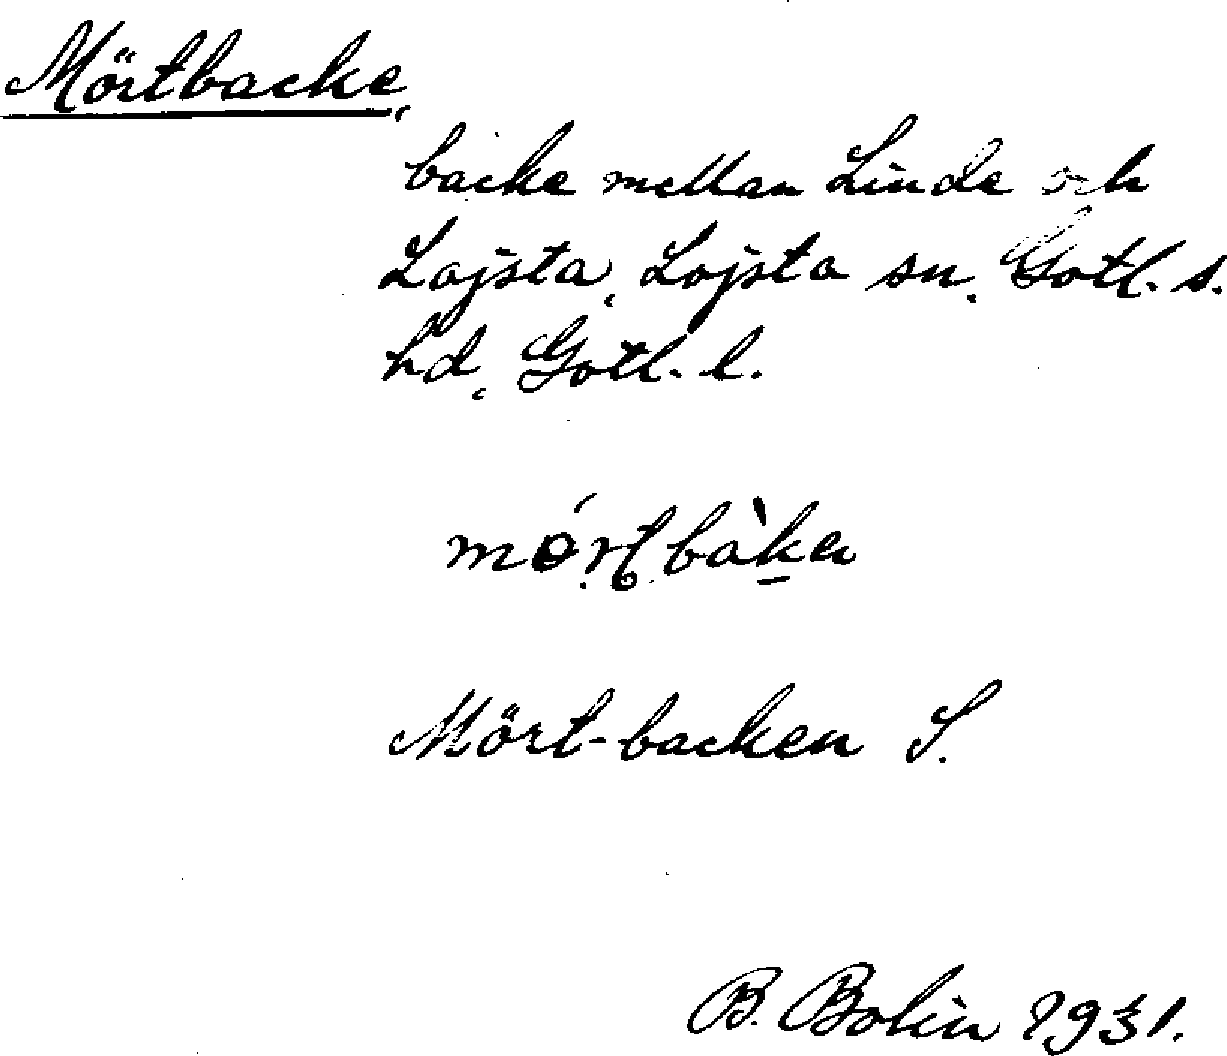 Mörtbacke,
backe mellan Linde och
Lojsta, Lojsta sn, Gotl. s.
hd, Gotl. l.
Mört-backen S.
B. Bolin 1931.